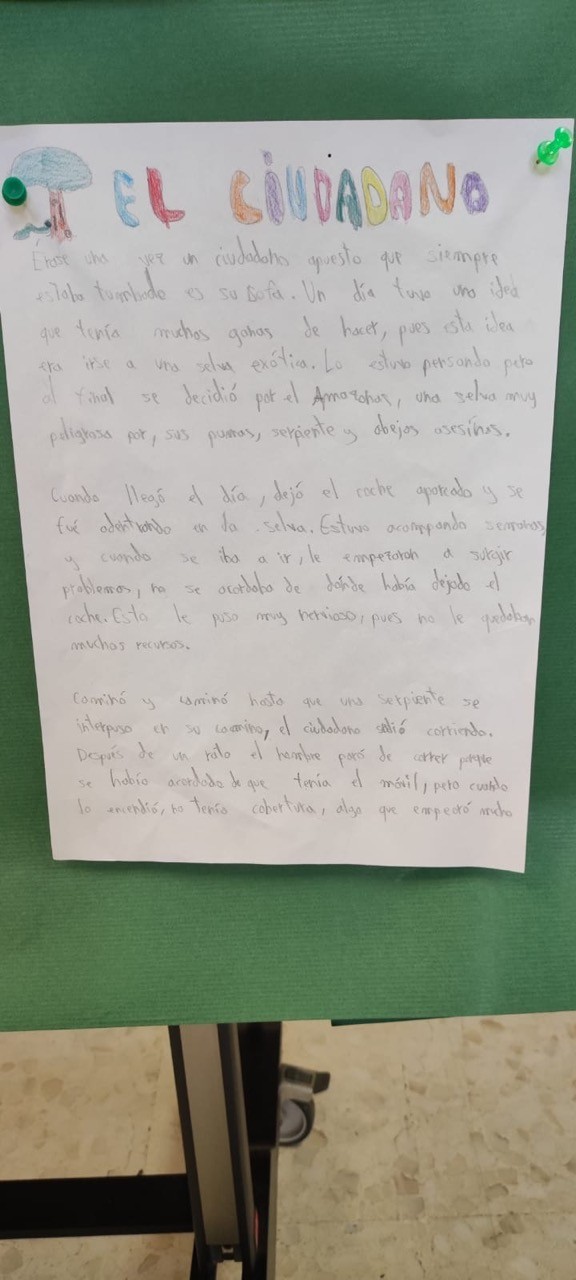 EL CIUDADANO
Érase una vez un ciudadano apuesto que siempre
estaba tumbado es su sofá. Un día tuvo una idea
que tenía muchas ganas de hacer, pues esta idea
era irse a una selva exótica. Lo estuvo pensando pero
al final se decidió por el Amazonas, una selva muy
peligrosa por, sus pumas, serpiente y abejas asesinas.
Cuando llegó el día, dejó el coche aparcado y se
fué adentrando en la selva. Estuvo acampando semanas
y cuando se iba a ir, le empezaron a surgir
problemas, no se acordaba de dónde había dejado el
coche. Esto le puso muy nervioso, pues no le quedaban
muchos recursos.
Caminó y caminó hasta que una serpiente se
interpuso en su camino, el ciudadano salió corriendo.
Después de un rato el hombre paró de correr porque
se había acordado de que tenía el móvil, pero cuando
lo encendió, no tenía cobertura, algo que empeoró mucho